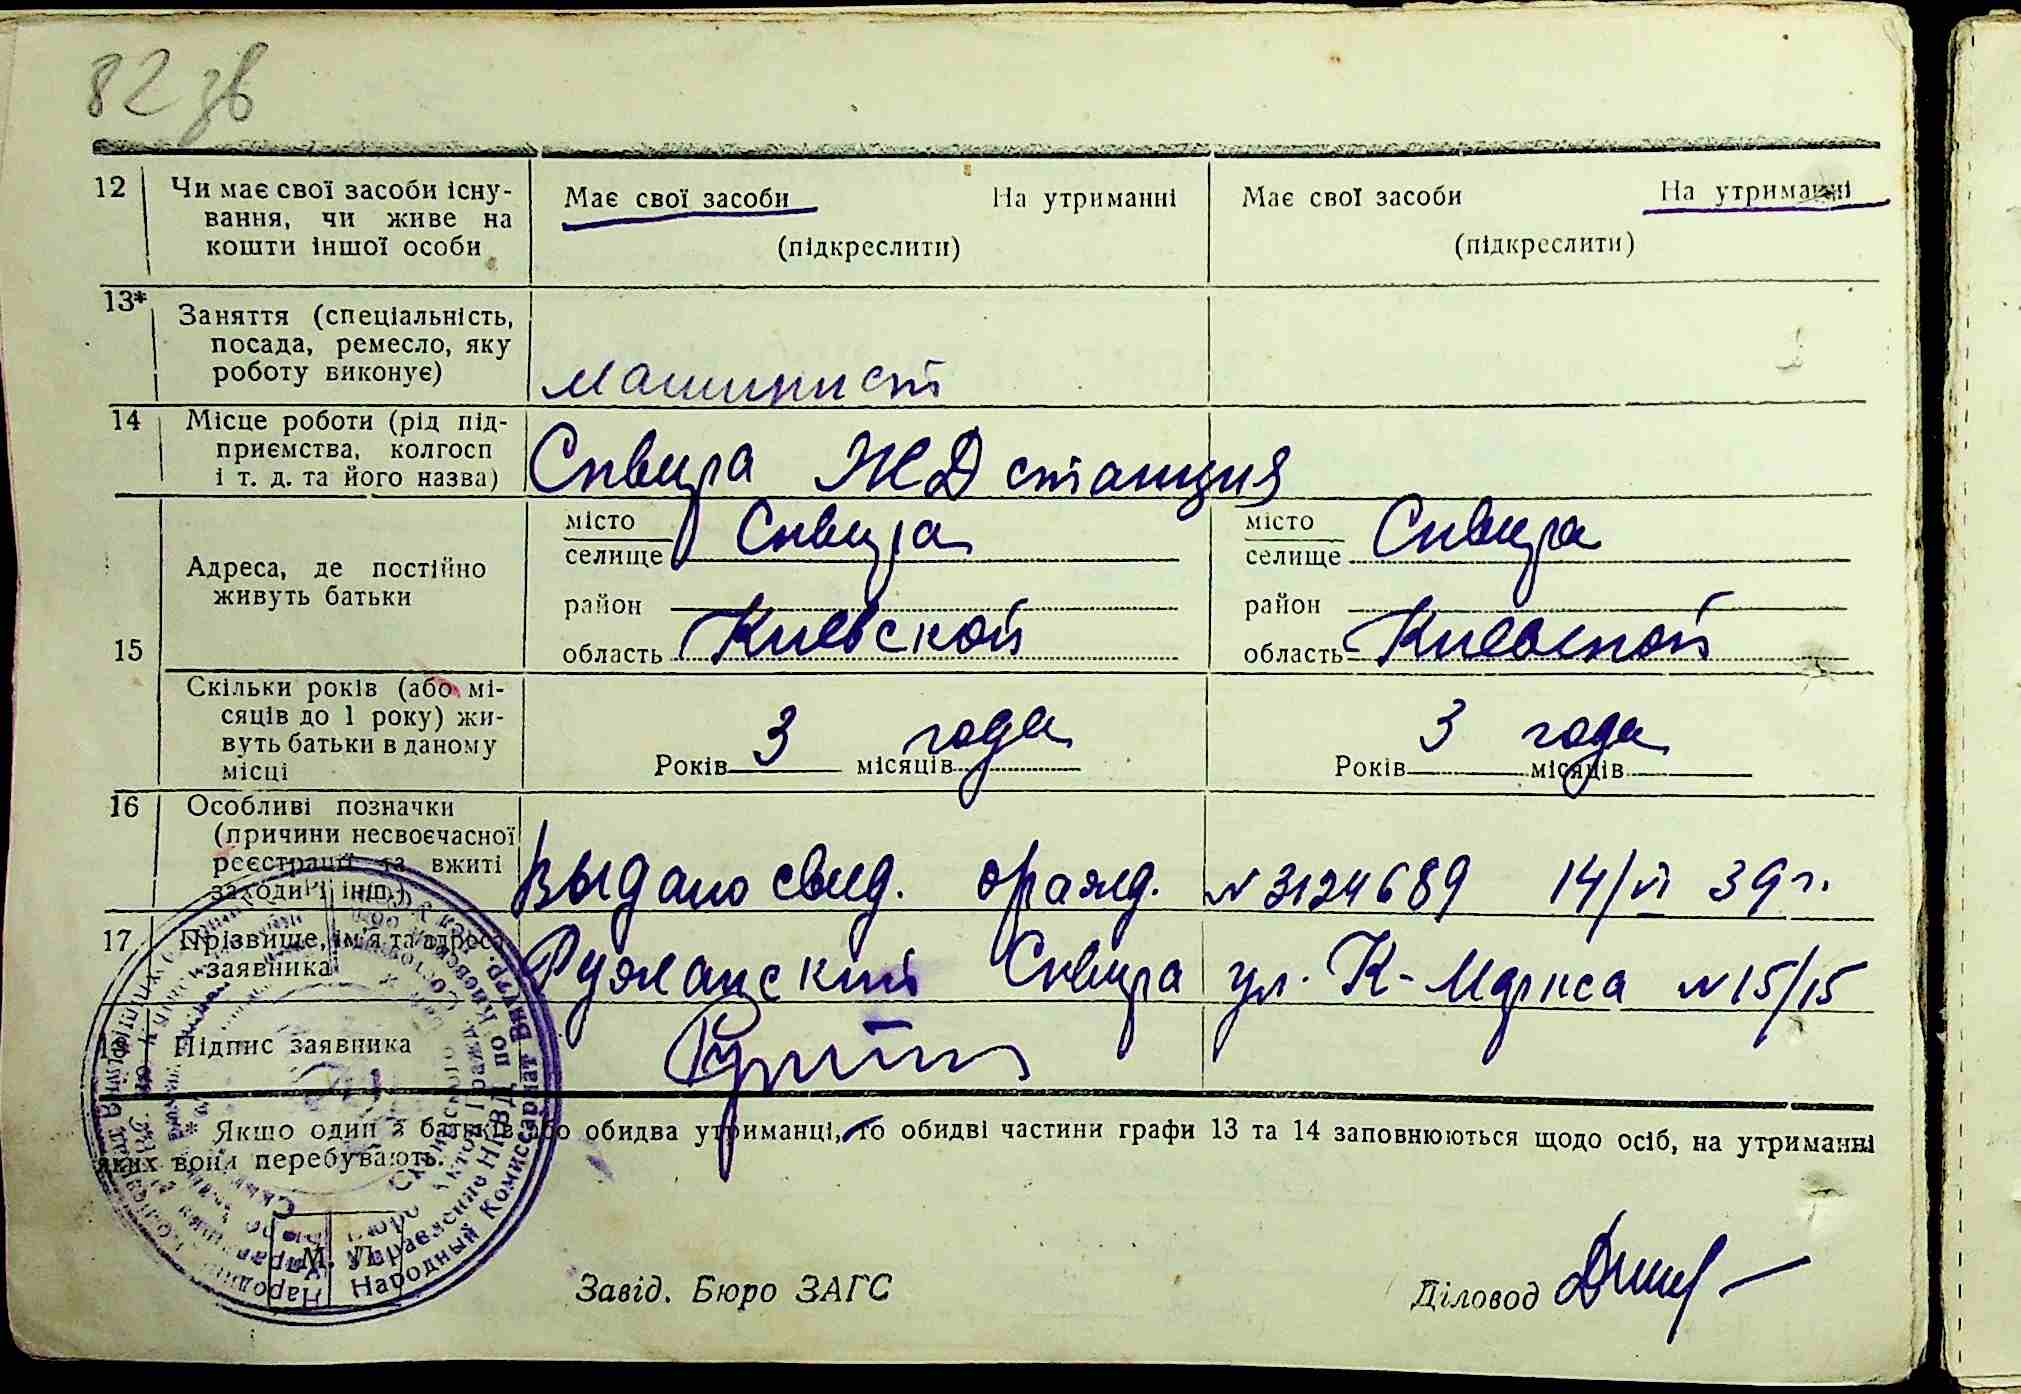 82 зв
12 Чи має свої засоби існу- Має свої засоби На утриманні Має свої засоби На утриманні
вання, чи живе на
кошти іншої особи (підкреслити) (підкреслити)
13* Заняття (спеціальність,
посада, ремесло, яку
роботу виконує) машинист
14 Місце роботи (рід під-
приємства, колгосп Сквира ЖД станция
і т. д. та його назва)
місто Сквира місто Сквира
селище селище
Адреса, де постійно
живуть батьки район район
15 область Киевской область Киевской
Скільки років (або мі-
сяців до 1 року) жи-
вуть батьки в даному Років 3 місяців года Років 3 місяців года
місці
16 Особливі позначки
(причини несвоєчасної
реєстрації та вжиті Выдано свид. о рожд. № 3124689 14/VI 39 г.
заходи і інш.)
17 Прізвище, ім'я та адреса
заявника Ружанский Сквира ул. К-Маркса № 15/15
18 Підпис заявника
* Якщо один з батьків або обидва утриманці, то обидві частини графи 13 та 14 заповнюються щодо осіб, на утриманні
яких вони перебувають.
М. П.
Народный Комиссариат Внутр.
Управление НКВД по Киевской
Завід. Бюро ЗАГС Діловод